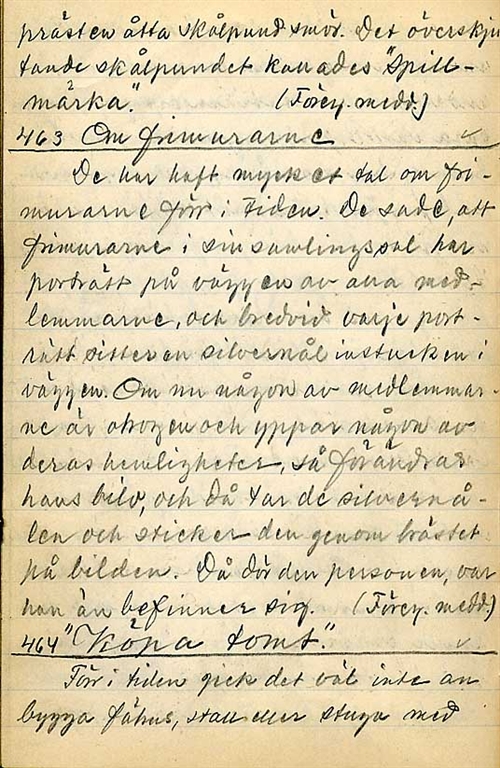 prästen åtta skålpund smör. Det överskju
tande skålpundet kallades "Spill-
märka". (Förey. medd.)
463 Om frimurarne
De har haft mycket tal om fri-
murarne förr i tiden. De sade, att
frimurarne i sin samlingssal har
porträtt på väggen av alla med-
lemmarne, och bredvid varje port-
rätt sitter en silvernål instucken i
väggen. Om nu någon av medlemmar-
ne är otrogen och yppar någon av
deras hemligheter, så förändras
hans bild, och då tar de silvernå-
len och sticker den genom bröstet
på bilden. Då dör den personen, var
han än befinner sig. (Förey. medd.)
464 "Köpa tomt".
Förr i tiden gick det väl inte an
bygga fähus, stall eller stuga med